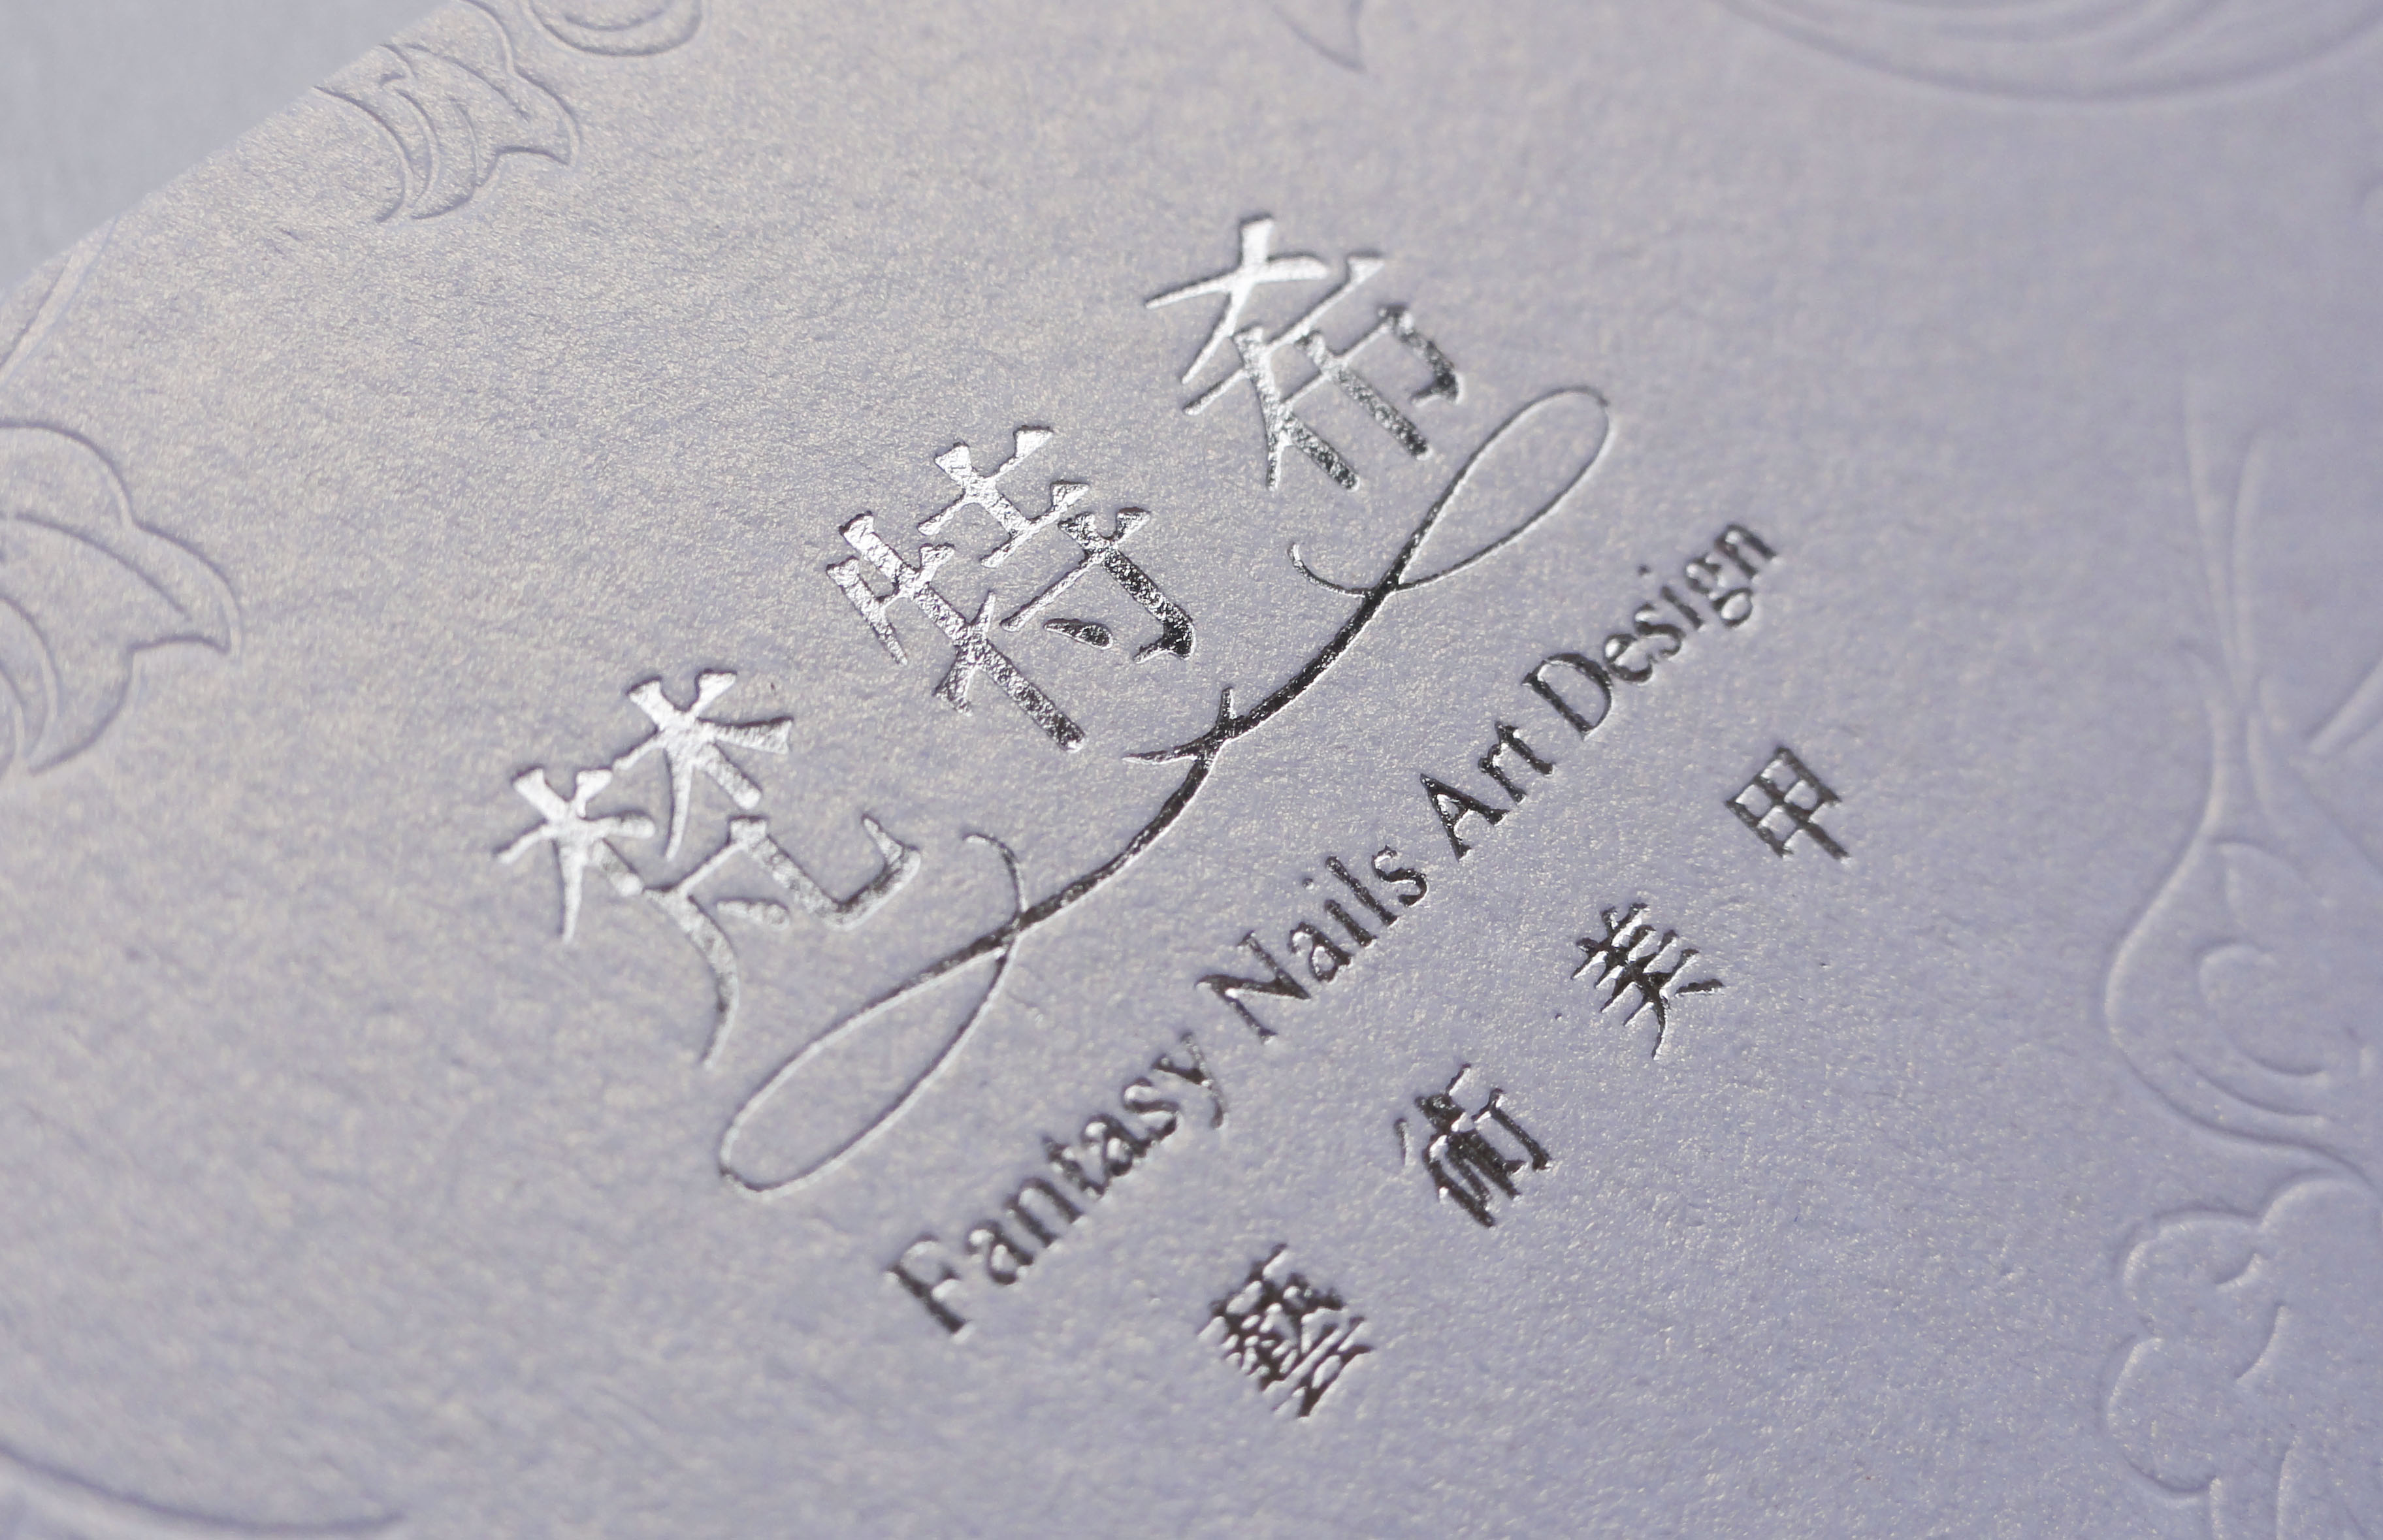 梵特希
Fantasy Nails Art Design
藝術美甲